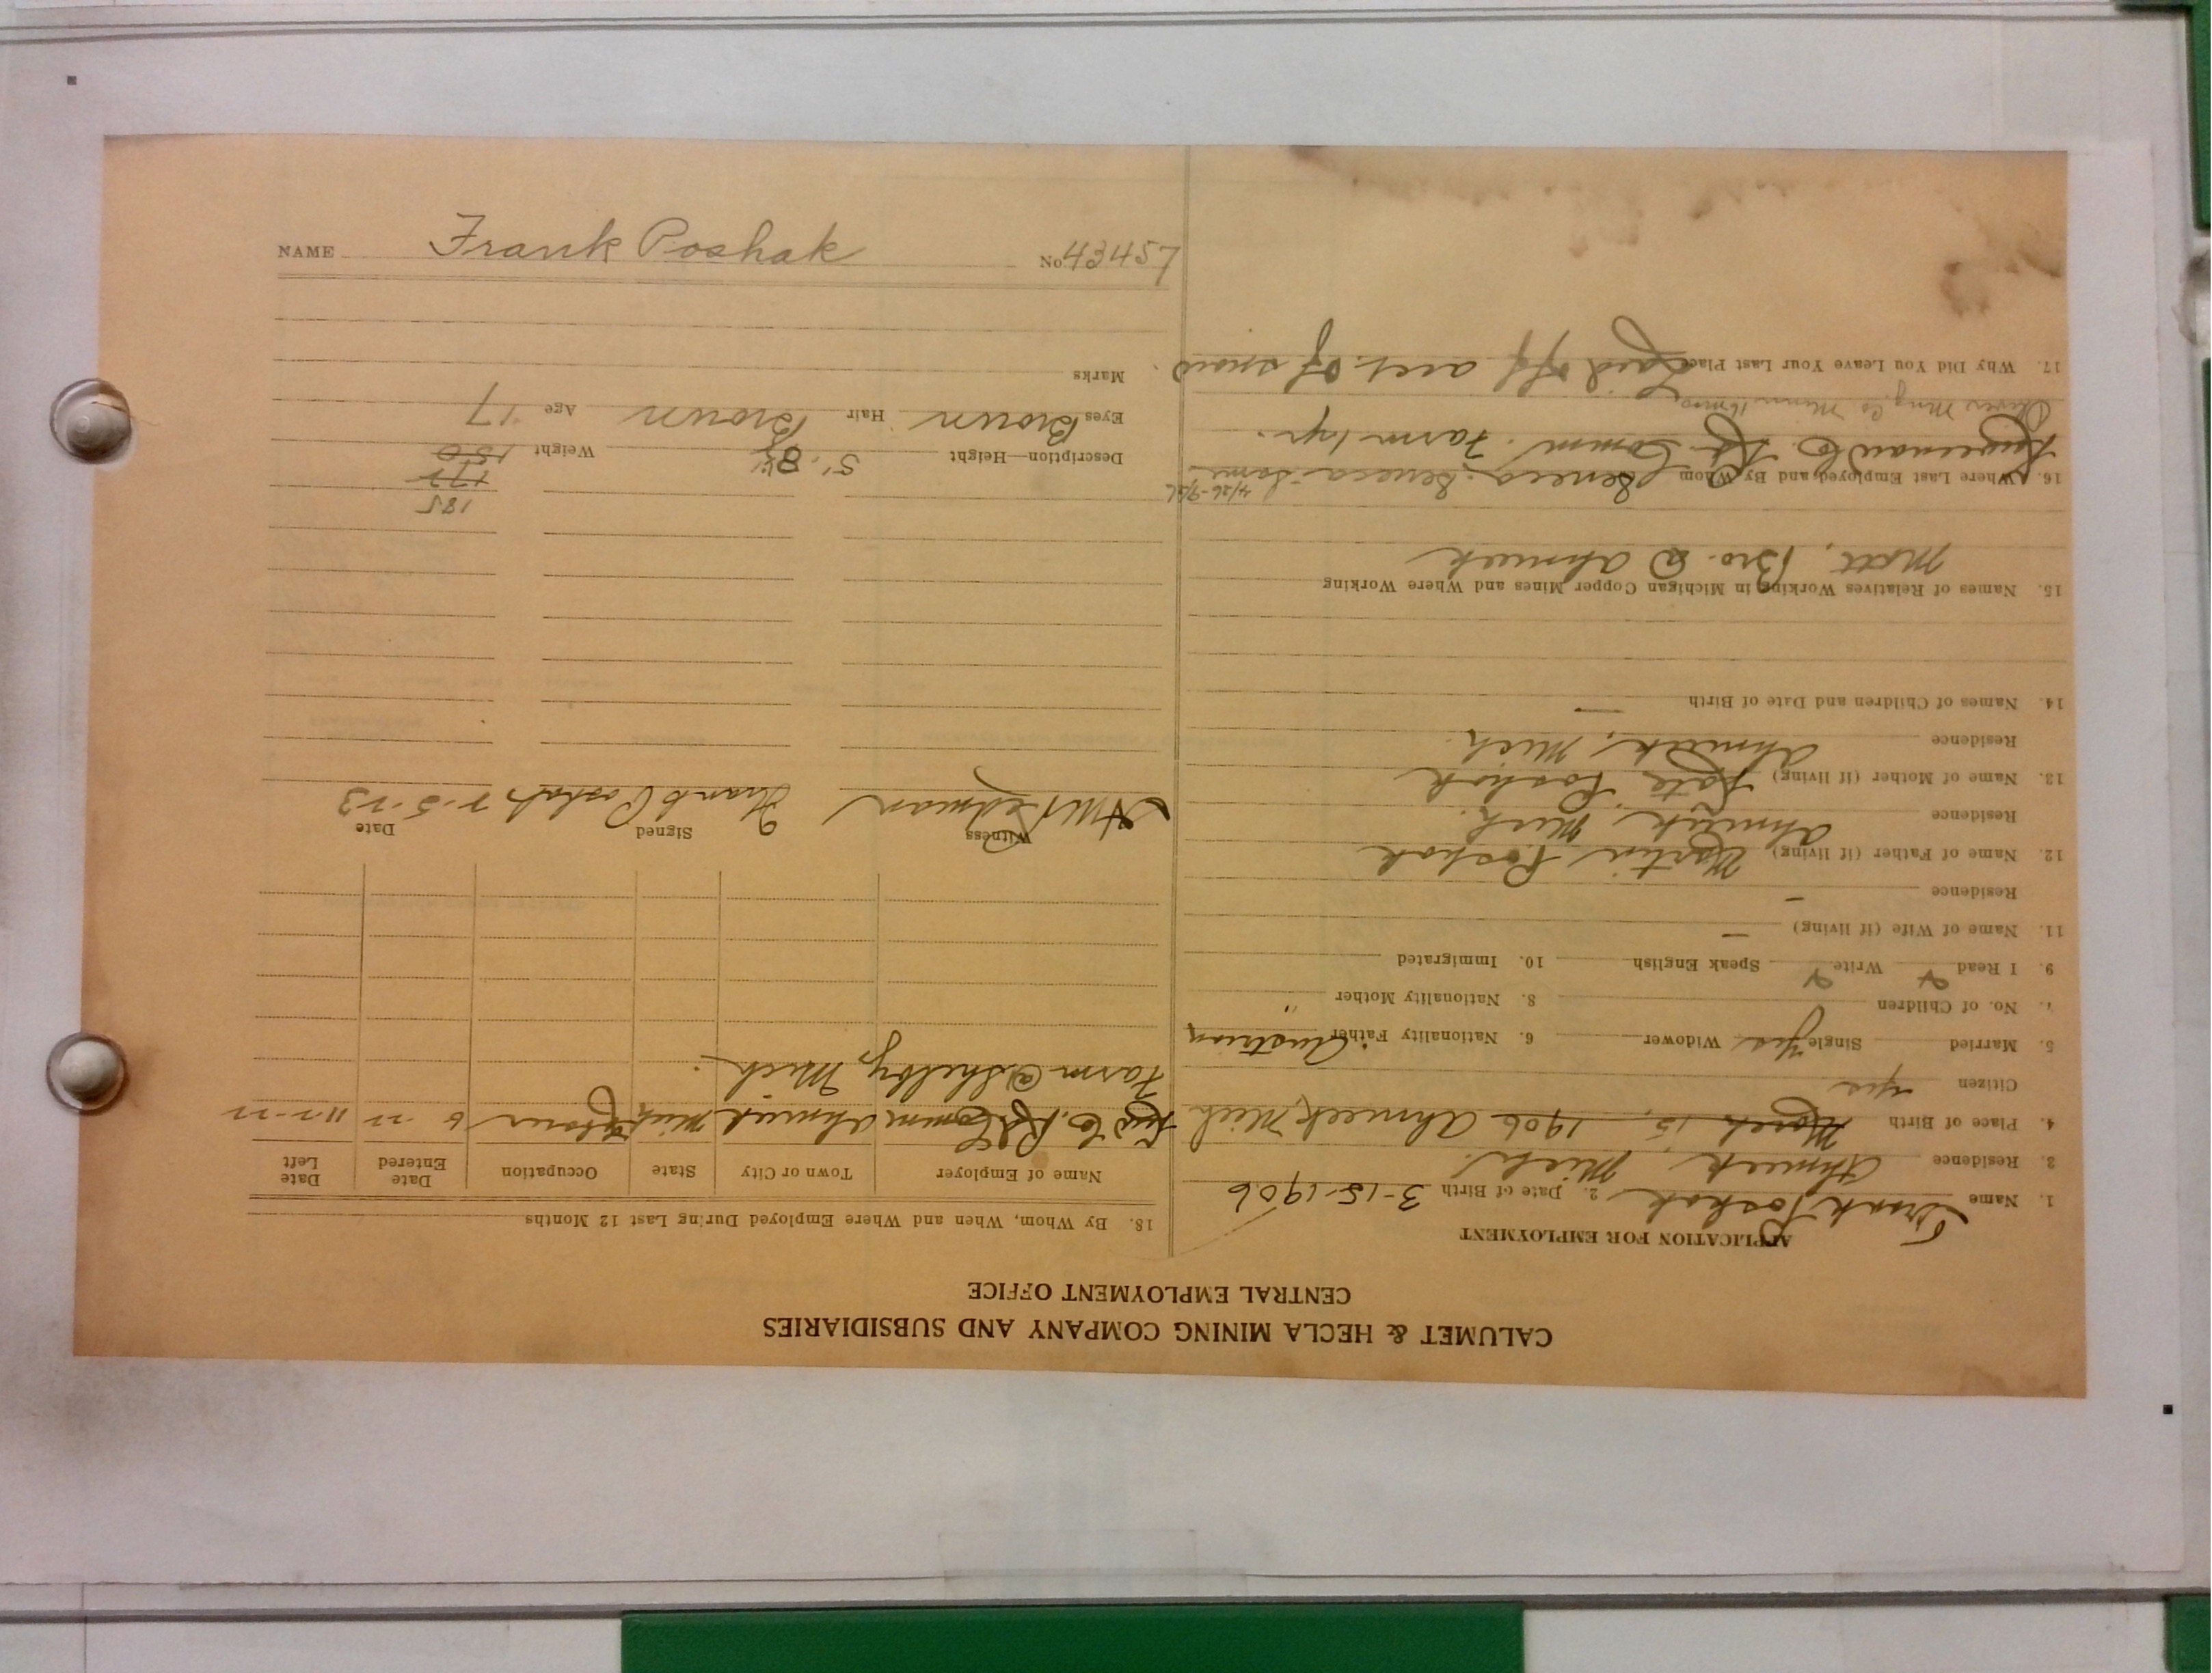 NAME Frank Poshak No. 43457
CALUMET & HECLA MINING COMPANY AND SUBSIDIARIES
CENTRAL EMPLOYMENT OFFICE
APPLICATION FOR EMPLOYMENT
1. Name Frank Poshak 2. Date of Birth 3-15-1906
3. Residence Ahmeek, Mich.
4. Place of Birth March 15, 1906 Ahmeek, Mich
Citizen Yes
5. Married Single Yes Widower 6. Nationality Father Austrian
7. No. of Children 8. Nationality Mother "
9. I Read Write Speak English 10. Immigrated
11. Name of Wife (if living) —
Residence —
12. Name of Father (if living) Martin Poshak
Residence Ahmeek, Mich.
13. Name of Mother (if living) Kate Poshak
Residence Ahmeek, Mich.
14. Names of Children and Date of Birth —
15. Names of Relatives Working in Michigan Copper Mines and Where Working
Matt, Bro. @ Ahmeek
16. Where Last Employed and By Whom Seneca, Seneca Loc. 4/26-9/26
Keweenaw Co Rd. Comm. Farm 1 yr.
Oliver Mng. Co Minn
17. Why Did You Leave Your Last Place Laid off acct. of snow.
18. By Whom, When and Where Employed During Last 12 Months
Name of Employer Town or City State Occupation Date Entered Date Left
Kew Co. Rd Comm Ahmeek Mich Labor 6-22 11-7-22
Farm @ Shelby, Mich.
Witness Signed Date
Frank Poshak 2-5-23
185
172
Description—Height 5'. 8½" Weight 150
Eyes Brown Hair Brown Age 17
Marks